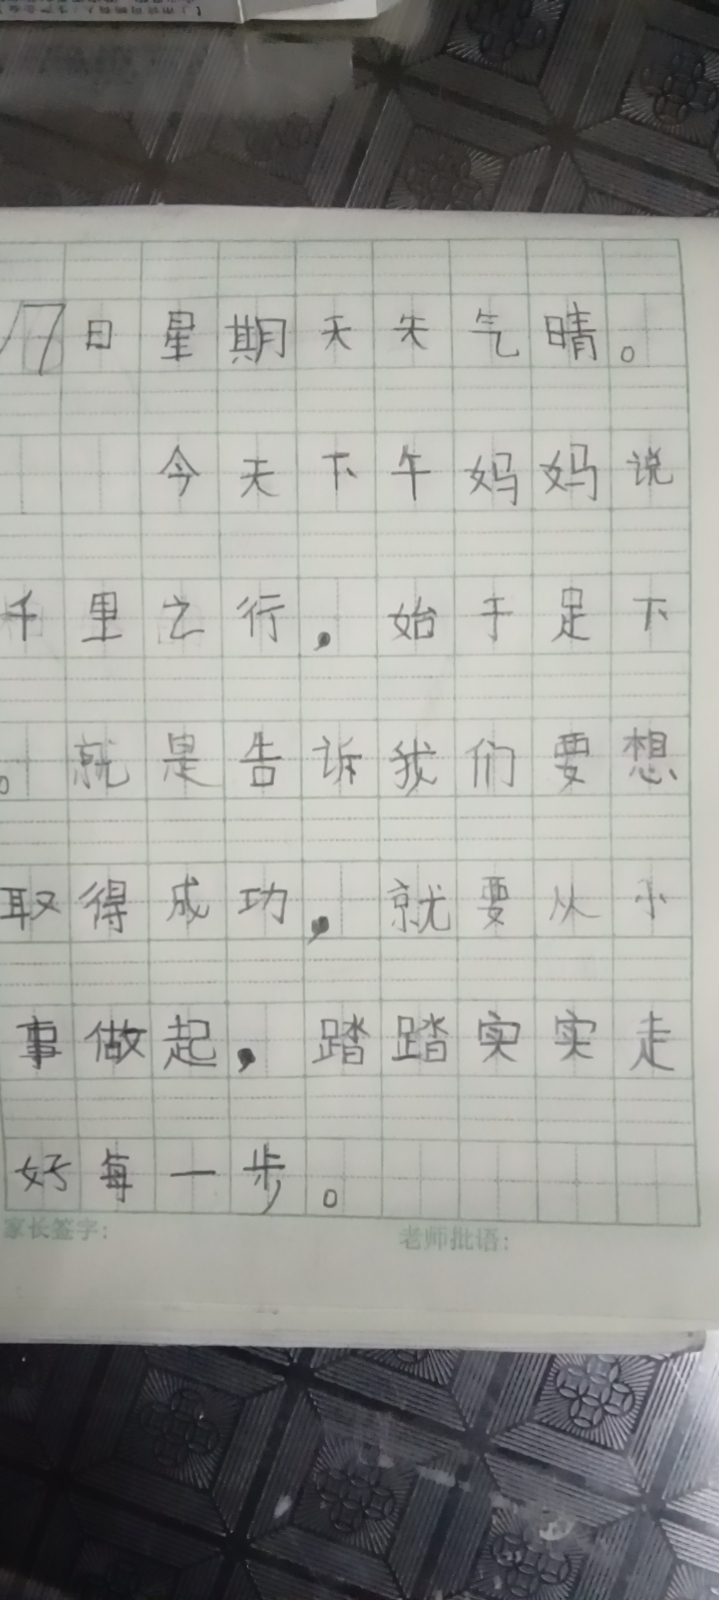 17日星期天天气晴。
今天下午妈妈说
千里之行,始于足下
。就是告诉我们要想
取得成功,就要从小
事做起,踏踏实实走
好每一步。
家长签字:
老师批语: